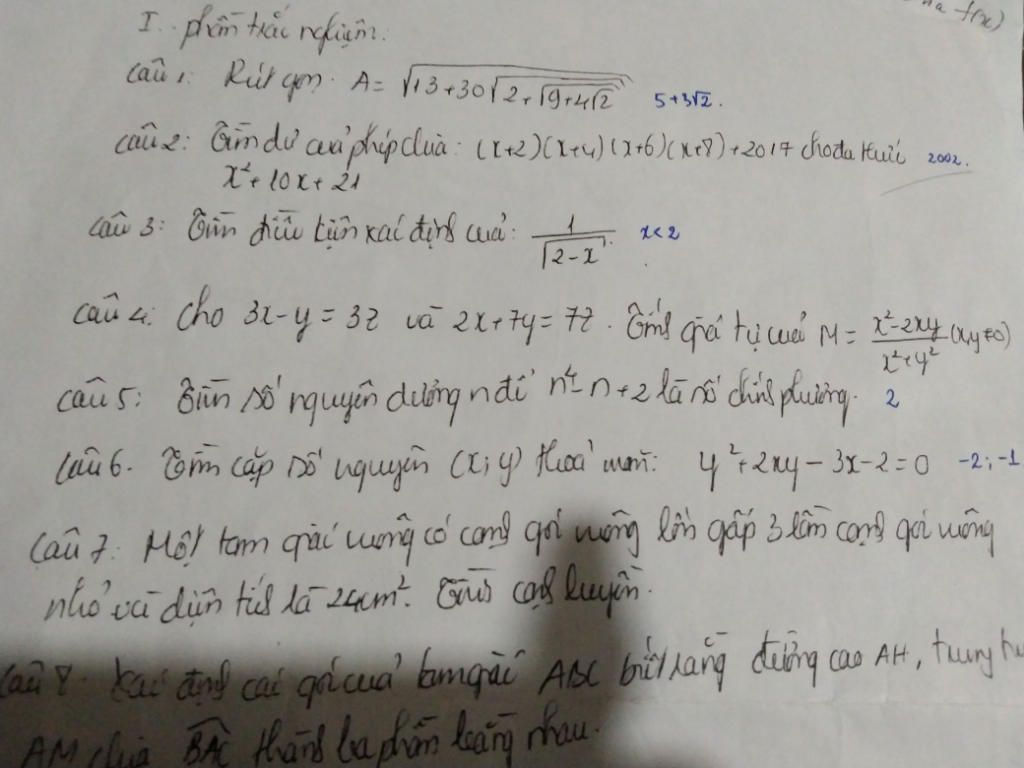 f(x)
I. phần trắc nghiệm.
Câu 1: Rút gọn. A = √(13+30√(2+√(9+4√2))) 5+3√2.
Câu 2: Tìm dư của phép chia: (x+2)(x+4)(x+6)(x+8)+2017 cho đa thức 2002.
x²+10x+21
Câu 3: Tìm điều kiện xác định của: 1/√(2-x) x<2
Câu 4: Cho 3x-y=3z và 2x+7y=7z. Tính giá trị của M = (x²-2xy)/(x²+y²) (x,y≠0)
Câu 5: Tìm số nguyên dương n để n²-n+2 là số chính phương. 2
Câu 6. Tìm cặp số nguyên (x;y) thoả mãn: y²+2xy-3x-2=0 -2;-1
Câu 7: Một tam giác vuông có cạnh góc vuông lớn gấp 3 lần cạnh góc vuông
nhỏ và diện tích là 24cm². Tính cạnh huyền.
Câu 8. Xác định các góc của tam giác ABC biết rằng đường cao AH, trung tu
AM chia BAC thành ba phần bằng nhau.